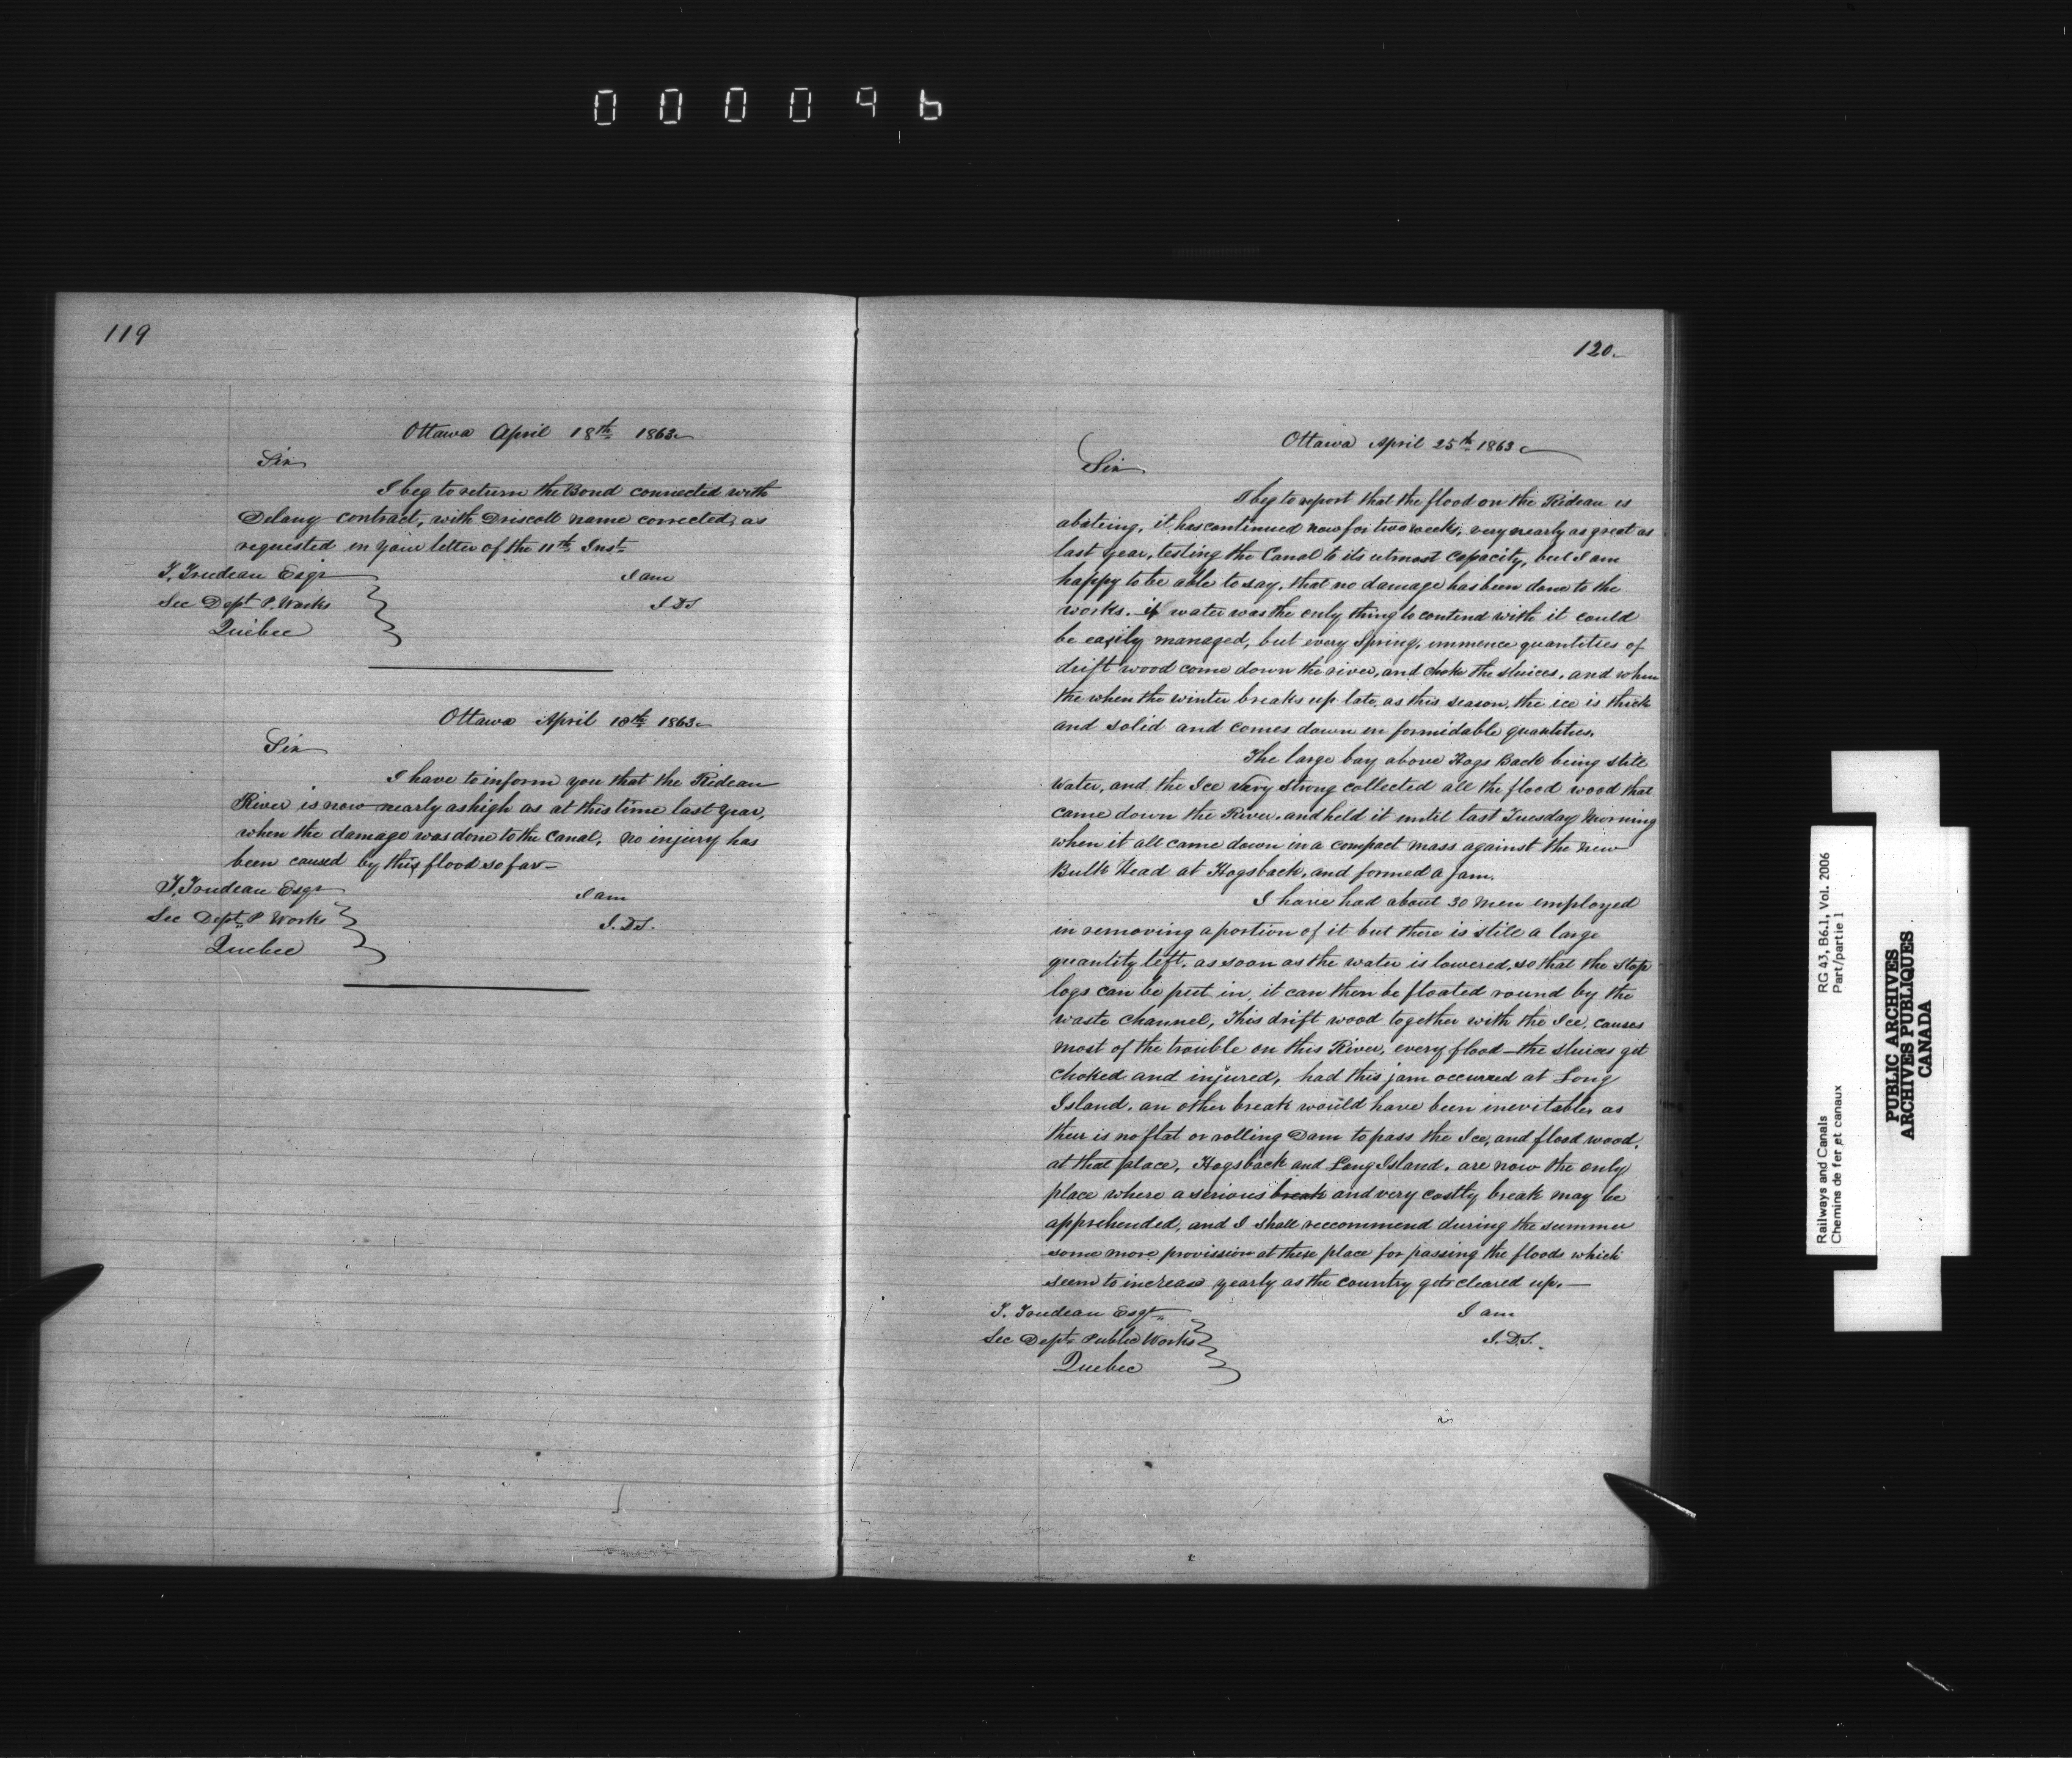 000096
119
Ottawa April 18th 1863
Sir
I beg to return the Bond connected with
Delany contract, with Driscoll name corrected, as
requested in your letter of the 11th Inst
T. Trudeau Esqr
I am
Sec Dept P. Works
J D S
Quebec
Ottawa April 18th 1863
Sir
I have to inform you that the Rideau
River is now nearly as high as at this time last year,
when the damage was done to the Canal, no injury has
been caused by this flood so far—
T. Trudeau Esqr
I am
Sec Dept P Works
J. D S.
Quebec
120
Ottawa April 25th 1863
Sir
I beg to report that the flood on the Rideau is
abateing, it has continued now for two weeks, very nearly as great as
last year, testing the Canal to its utmost capacity, but I am
happy to be able to say, that no damage has been done to the
works. if water was the only thing to contend with it could
be easily managed, but every Spring, immence quantities of
drift wood come down the river, and choke the sluices, and when
the when the winter breaks up late, as this season, the ice is thick
and solid and comes down in formidable quantities.
The large bay above Hogs Back being still
water, and the Ice very strong collected all the flood wood that
came down the River, and held it until last Tuesday Morning
when it all came down in a compact mass against the new
Bulk Head at Hogsback, and formed a jam.
I have had about 30 men employed
in removing a portion of it but there is still a large
quantity left, as soon as the water is lowered, so that the stop
logs can be put in, it can then be floated round by the
waste channel, This drift wood together with the Ice, causes
most of the trouble on this River, every flood—the sluices get
choked and injured, had this jam occurred at Long
Island, an other break would have been inevitable, as
their is no flat or rolling Dam to pass the Ice, and flood wood,
at that place, Hogsback and Long Island, are now the only
place where a serious break and very costly break may be
apprehended, and I shall reccommend during the summer
some more provission at these place for passing the floods which
seem to increase yearly as the country gets cleared up.—
T. Trudeau Esqr
I am
Sec Dept Public Works
J. D. S.
Quebec
Railways and Canals
Chemins de fer et canaux
RG 43, B6.1, Vol. 2006
Part/partie 1
PUBLIC ARCHIVES
ARCHIVES PUBLIQUES
CANADA